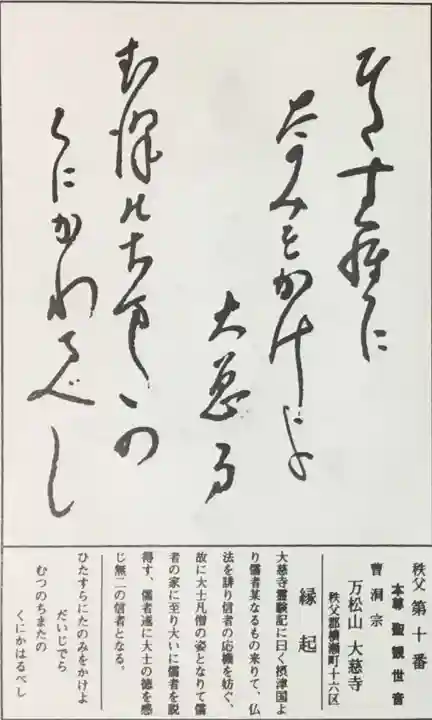 ひたす羅に
たのみをかけよ
大慈る
むつのちまたの
くにかわるべし
秩父 第十番
本尊 聖観世音
曹洞宗
万松山 大慈寺
秩父郡横瀬町十六区
縁起
大慈寺霊験記に曰く摂津国よ
り儒者某なるもの来りて、仏
法を誹り信者の応機を妨ぐ、
故に大士凡僧の姿となりて儒
者の家に至り大いに儒者を説
得す、儒者遂に大士の徳を感
じ無二の信者となる。
ひたすらにたのみをかけよ
だいじでら
むつのちまたの
くにかはるべし